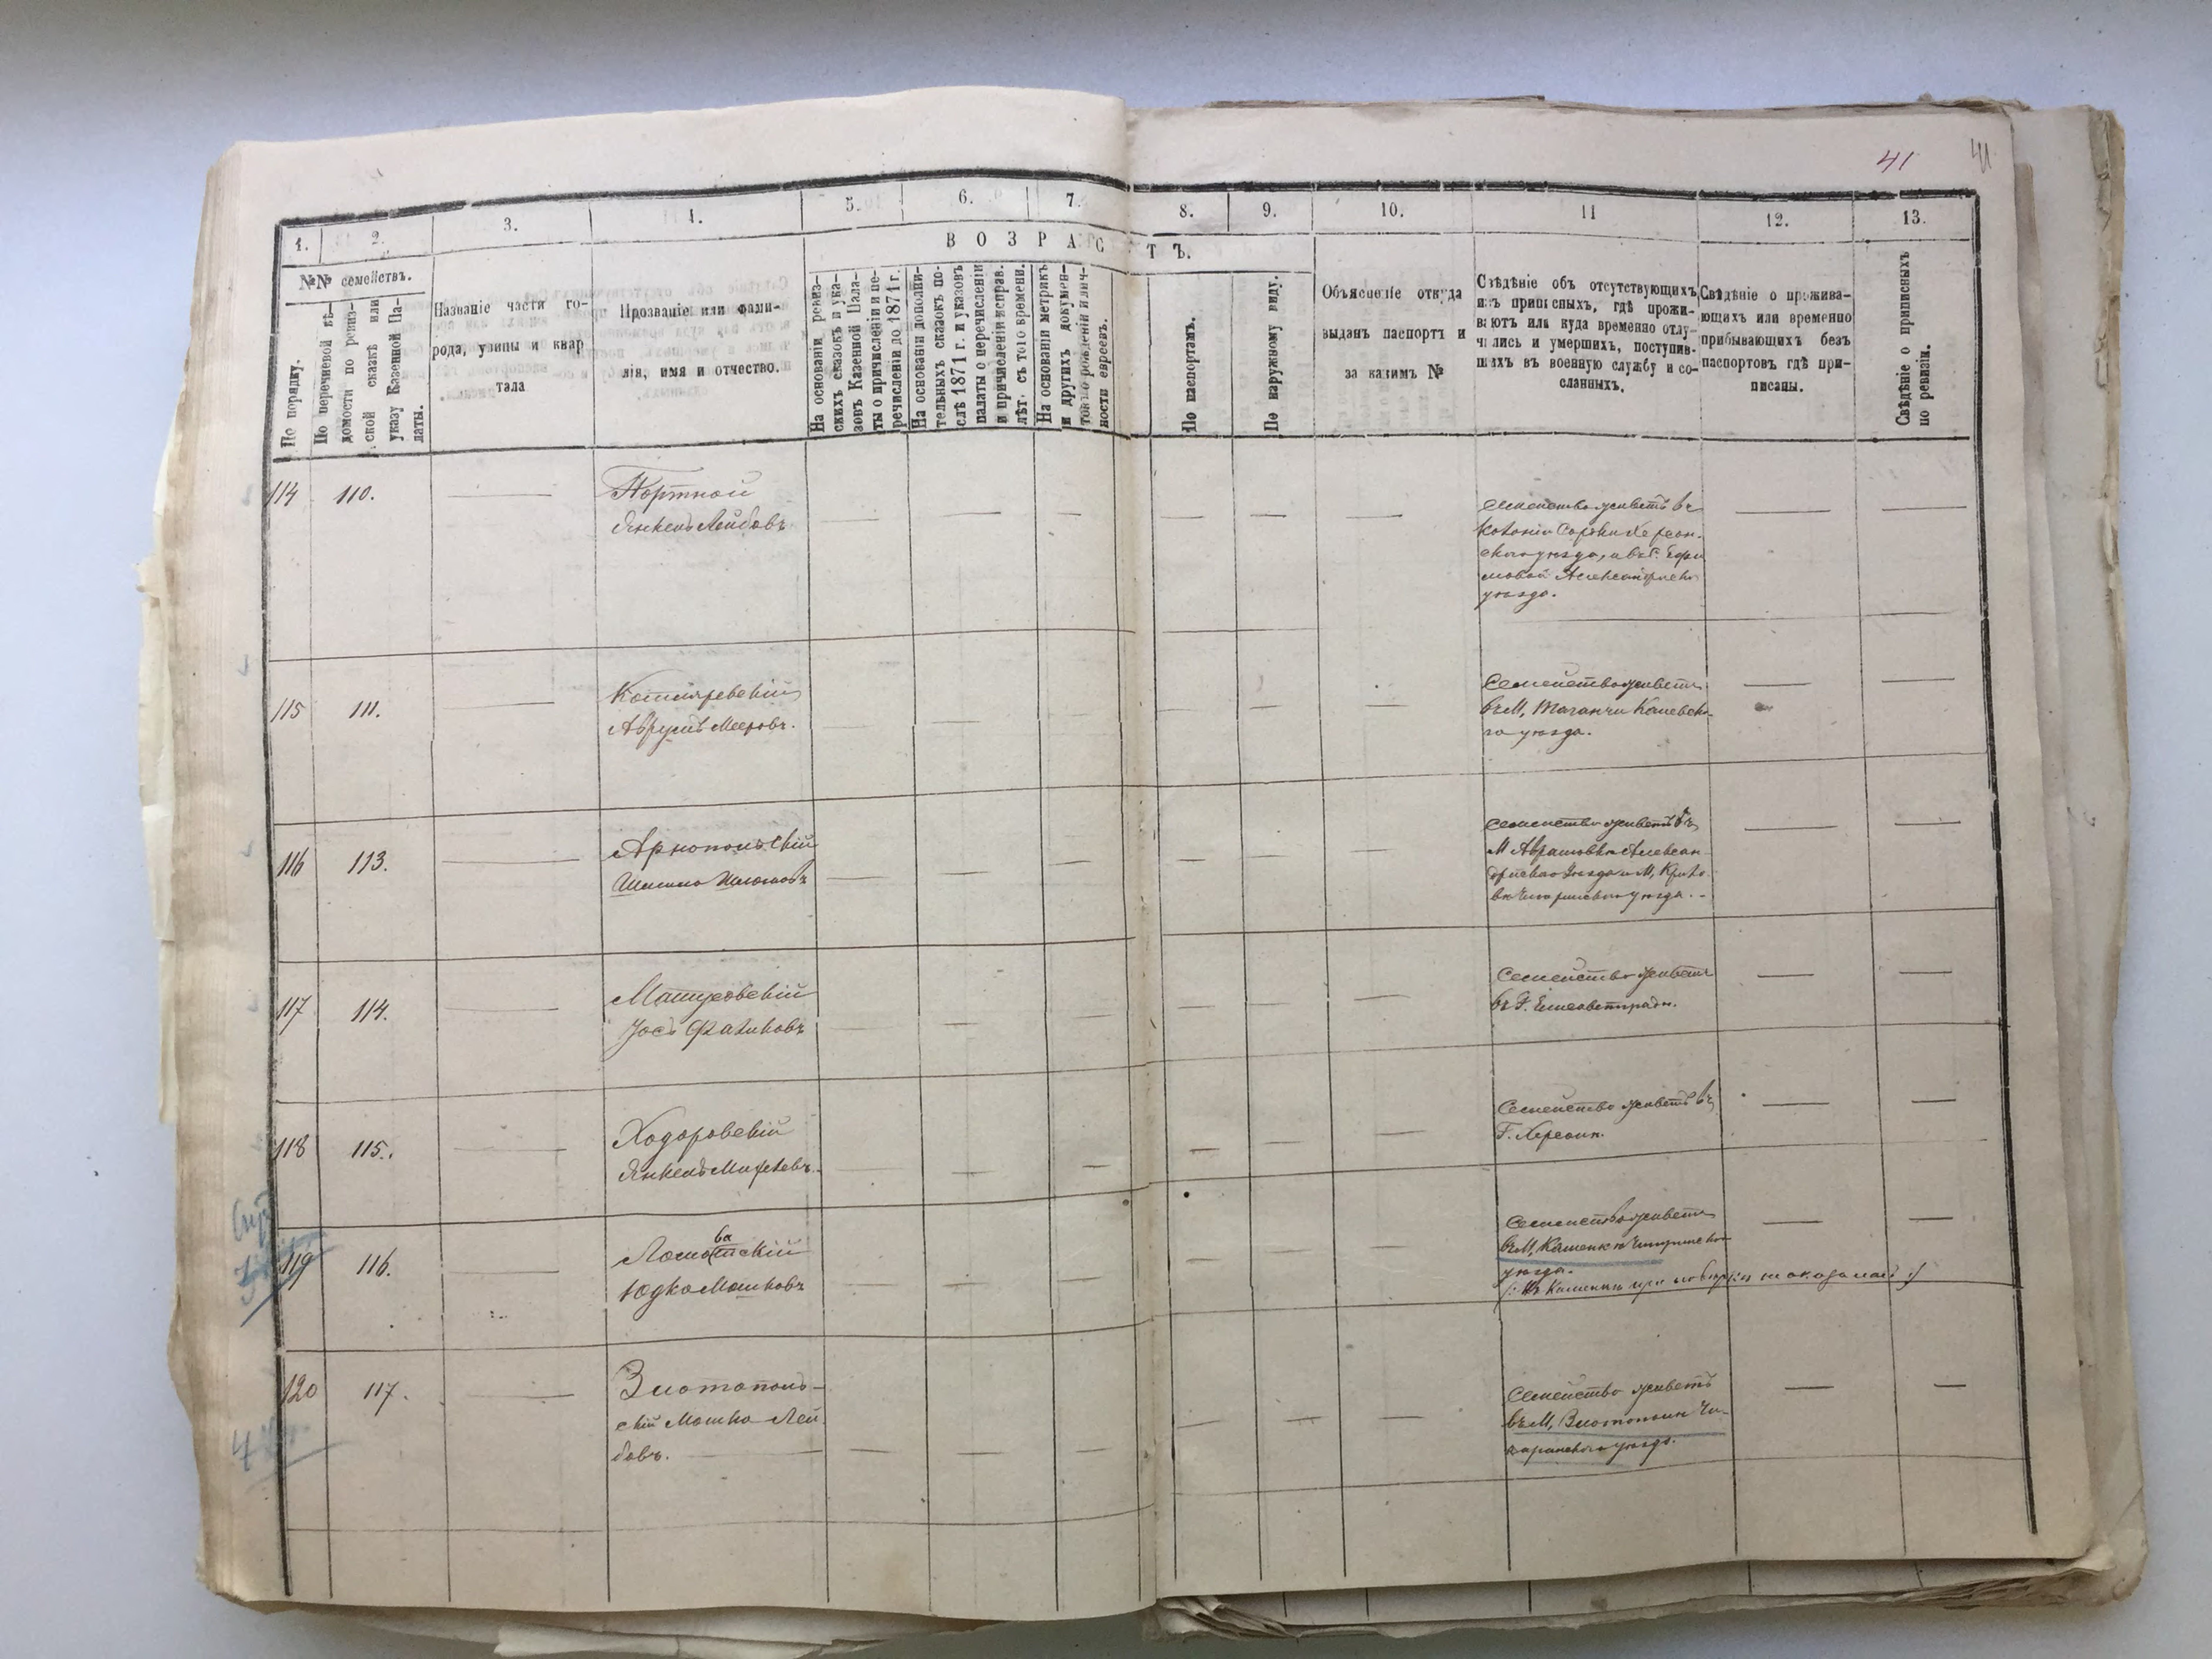 41
41
1. 2. 3. 4. 5. 6. 7. 8. 9. 10. 11 12. 13.
ВОЗРАСТЪ.
№№ семействъ.
По порядку.
По перечневой вѣ-
домости по ревиз-
ской сказкѣ или
указу Казенной Па-
латы.
Названіе части го-
рода, улицы и квар
тала
Прозваніе или фами-
лія, имя и отчество.
На основаніи ревиз-
скихъ сказокъ и ука-
зовъ Казенной Пала-
ты о причисленіи и пе-
речисленіи до 1871 г.
На основаніи дополни-
тельныхъ сказокъ по-
слѣ 1871 г. и указовъ
палаты о перечисленіи
и причисленіи исправ.
лѣт. съ того времени.
На основаніи метрикъ
и других докумен-
товъ о рожденіи и лич-
ности евреевъ.
По паспортамъ.
По наружному виду.
Объясненіе откуда
выданъ паспортъ и
за какимъ №
Свѣдѣніе объ отсутствующихъ
изъ приписныхъ, гдѣ прожи-
ваютъ или куда временно отлу-
чились и умершихъ, поступив-
шихъ въ военную службу и со-
сланныхъ.
Свѣдѣніе о прожива-
ющихъ или временно
прибывающихъ безъ
паспортовъ гдѣ при-
писаны.
Свѣдѣніе о приписныхъ
по ревизіи.
114 110. Портной
Янкель Лейбовъ
Семейство живетъ въ
колоніи Херсон-
скаго уѣзда, а въ
уѣзда.
115 111. Котляревскій
Аврумъ Мееровъ.
Семейство живетъ
въ М, Таганчи Каневска-
го уѣзда.
116 113. Арнопольскій
Шлiомовъ
Семейство живетъ въ
М Аврамовкѣ Алексан-
дрійскаго уѣзда и М,
Чигиринскаго уѣзда.
117 114. Матусовскій
Іось Фаликовъ
Семейство живетъ
въ Г. Елисаветградѣ.
118 115. Ходоровскій
Янкель
Семейство живетъ въ
Г. Херсонѣ.
119 116.
ва
Юдко Мошковъ
Семейство живетъ
въ М, Каменкѣ Чигиринскаго
уѣзда.
(: Въ Каменкѣ при повѣркѣ не оказалась :)
120 117. Златополь-
скій Мошко Лей
бовъ.
Семейство живетъ
въ М, Златополѣ Чи-
гиринскаго уѣзда.